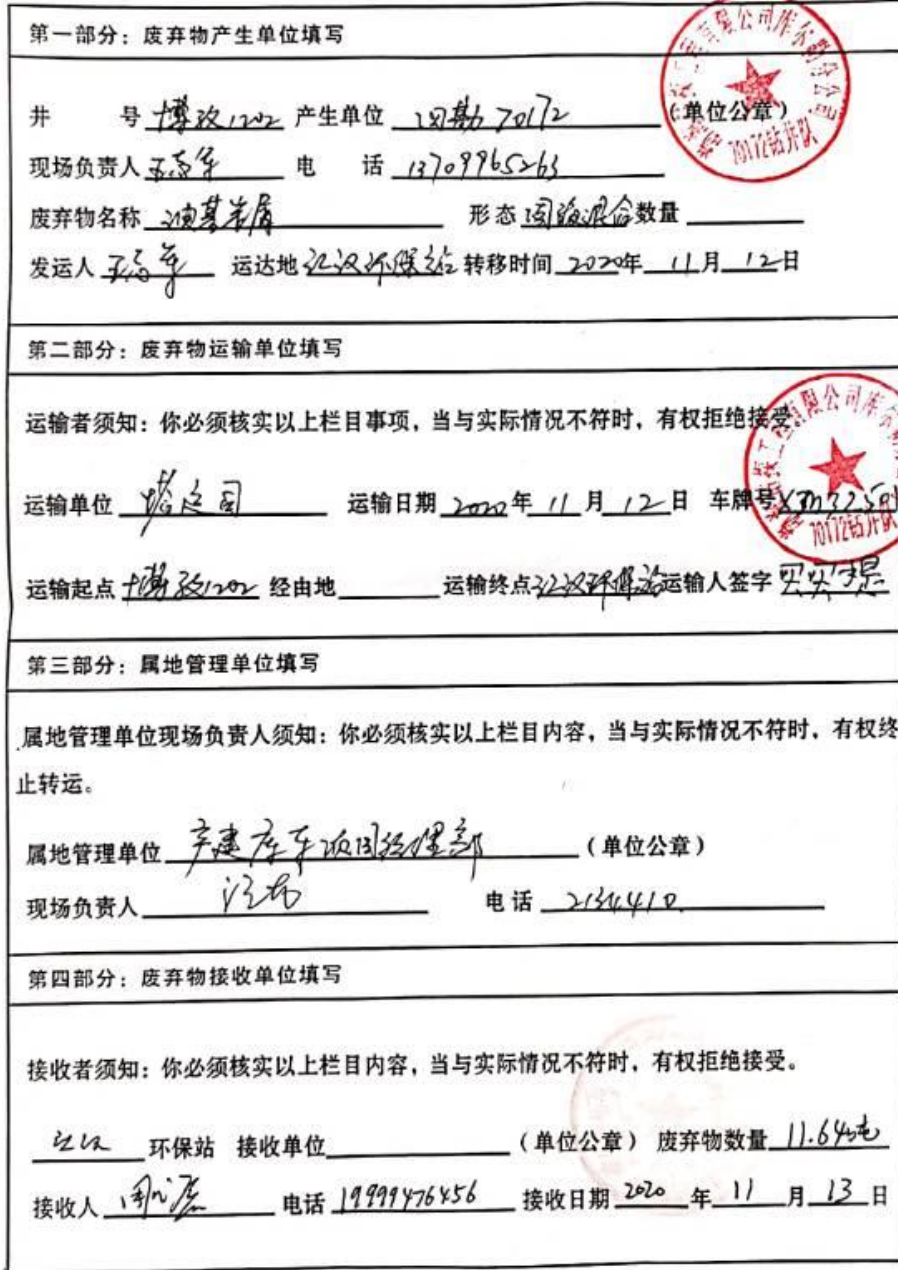 第一部分：废弃物产生单位填写
井 号 博孜1202 产生单位 70172 （单位公章）
现场负责人 电 话 13709965263
废弃物名称 油基岩屑 形态 固液混合 数量
发运人 运达地 江汉环保站 转移时间 2020年 11月 12日
70172钻井队
第二部分：废弃物运输单位填写
运输者须知：你必须核实以上栏目事项，当与实际情况不符时，有权拒绝接受。
运输单位 塔运司 运输日期 2020年 11月 12日 车牌号
70172钻井队
运输起点 博孜1202 经由地 运输终点 江汉环保站 运输人签字
第三部分：属地管理单位填写
属地管理单位现场负责人须知：你必须核实以上栏目内容，当与实际情况不符时，有权终
止转运。
属地管理单位 产建库车项目经理部 （单位公章）
现场负责人 电话 2134410
第四部分：废弃物接收单位填写
接收者须知：你必须核实以上栏目内容，当与实际情况不符时，有权拒绝接受。
江汉 环保站 接收单位 （单位公章） 废弃物数量 11.64吨
接收人 电话 19999476456 接收日期 2020 年 11 月 13 日